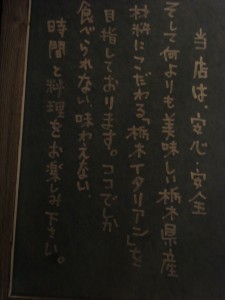 当店は、安心・安全
そして何よりも美味しい栃木県産
材料にこだわる「栃木イタリアン」を
目指しております。ココでしか
食べられない、味わえない
時間と料理をお楽しみ下さい。